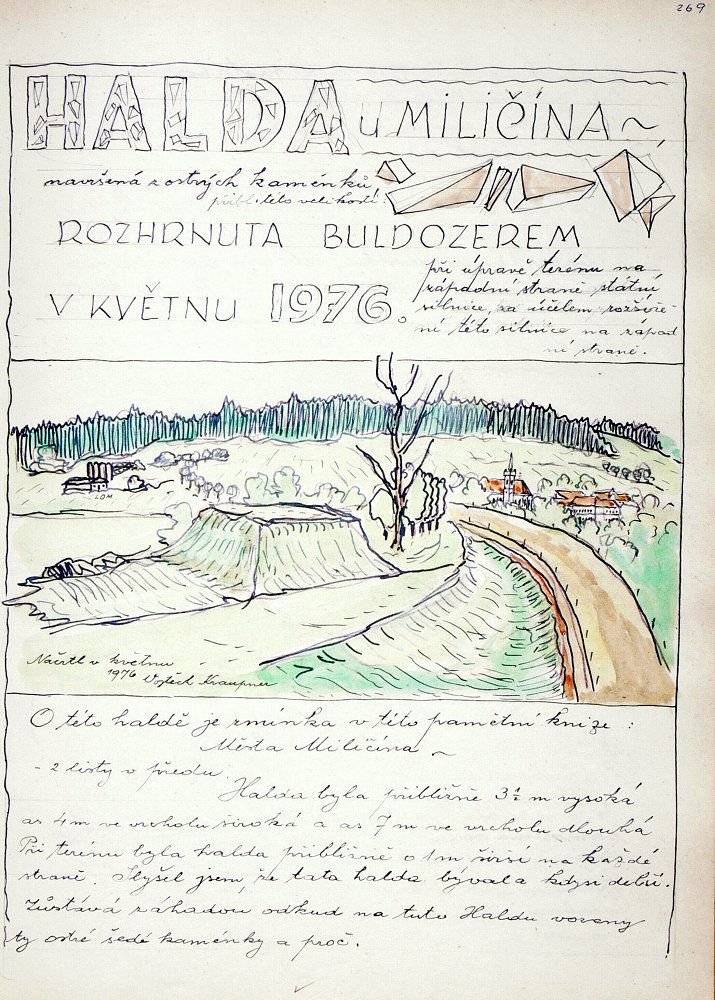 269
HALDA u MILIČÍNA ~,
navršená z ostrých kaménků,
přibl. této velikosti:
ROZHRNUTA BULDOZEREM
při úpravě terénu na
V KVĚTNU 1976.
západní straně státní
silnice, za účelem rozšíře
ní této silnice na západ
ní straně.
LOM
Načrtl v květnu
1976 Vojtěch Kraupner
O této haldě je zmínka v této pamětní knize :
Města Miličína ~
- 2 listy v předu.
Halda byla přibližně 3½ m vysoká
as 4 m ve vrcholu široká a as 7 m ve vrcholu dlouhá
Při terénu byla halda přibližně o 1 m širší na každé
straně. Slyšel jsem, že tata halda bývala kdysi delší.
Zůstává záhadou odkud na tuto Haldu vozeny
ty ostré šedé kaménky a proč.